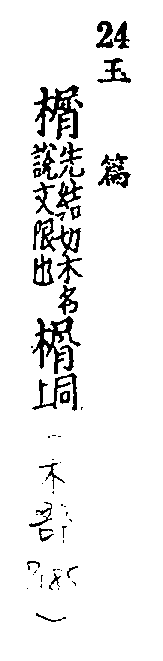 24 玉篇
榍先結切木名
說文限也
榍同上
(木部
)